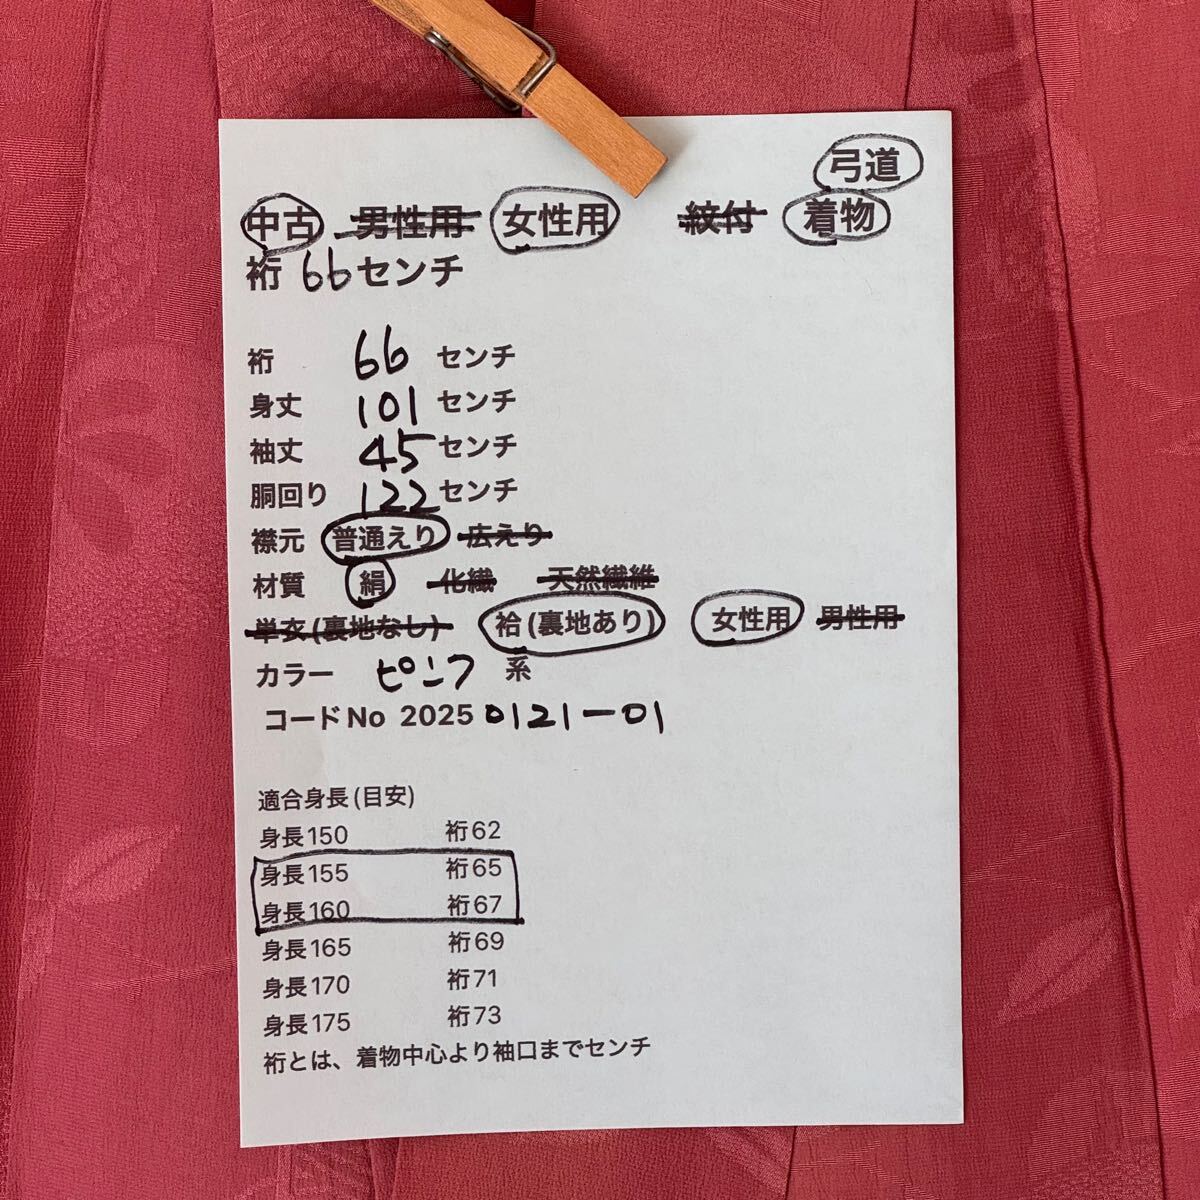 弓道
中古 男性用 女性用 紋付 着物
裄 66センチ
裄 66 センチ
身丈 101 センチ
袖丈 45 センチ
胴回り 122 センチ
襟元 普通えり 広えり
材質 絹 化繊 天然繊維
単衣(裏地なし) 袷(裏地あり) 女性用 男性用
カラー ピンク 系
コードNo 20250121-01
適合身長(目安)
身長150 裄62
身長155 裄65
身長160 裄67
身長165 裄69
身長170 裄71
身長175 裄73
裄とは、着物中心より袖口までセンチ